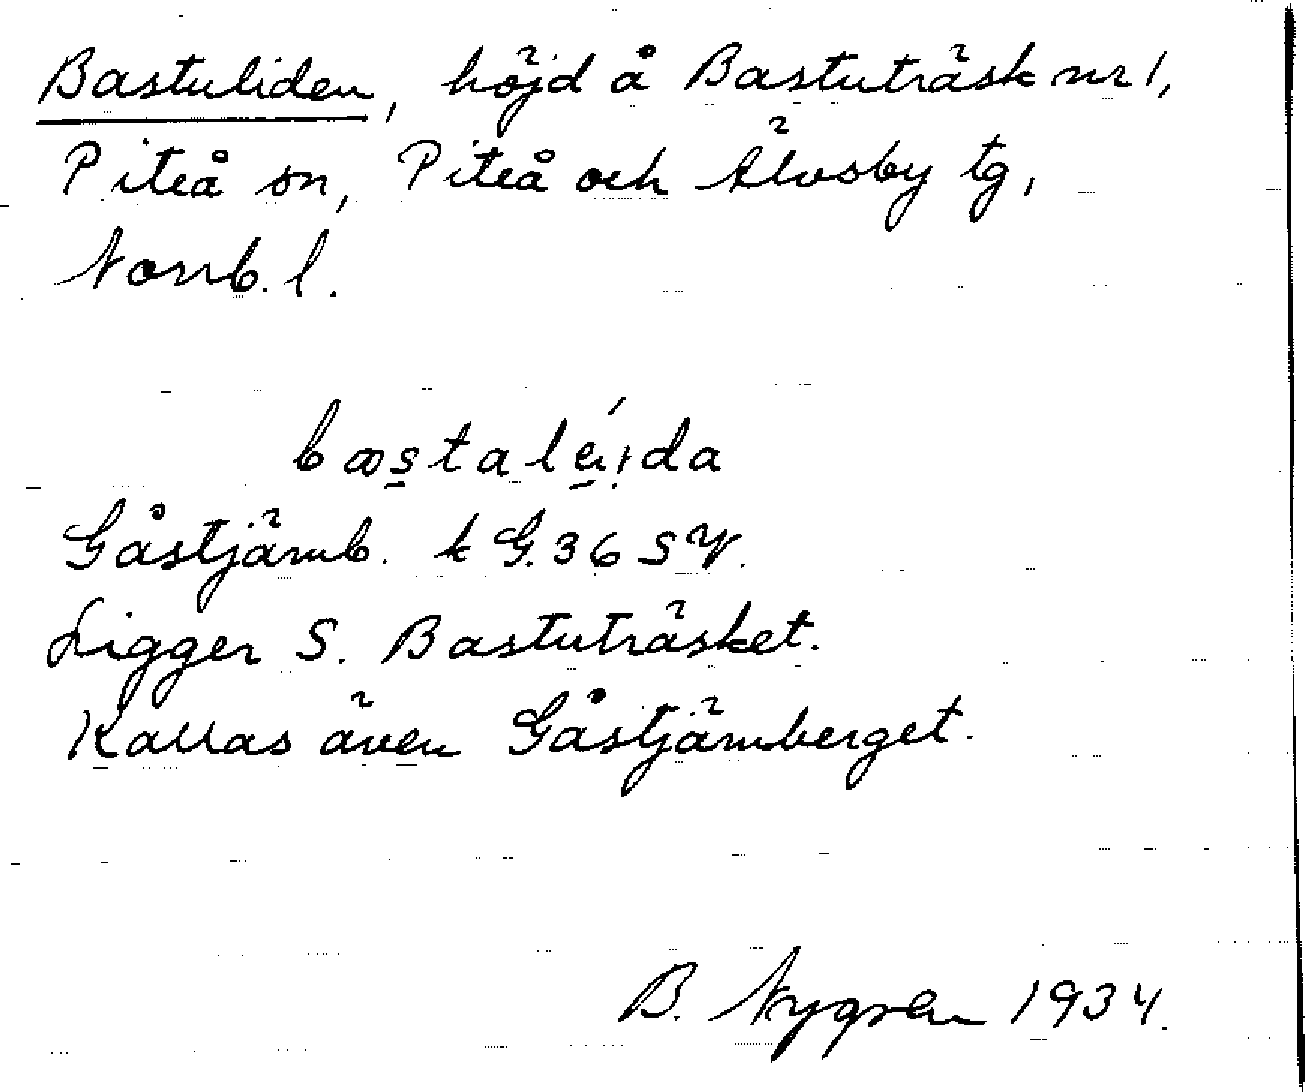 Bastuliden, höjd å Bastuträsk nr 1,
Piteå sn, Piteå och Älvsby tg,
Norrb. l.
Gåstjärnb. k G. 36 SV.
Ligger S. Bastuträsket.
Kallas även Gåstjärnberget.
B. Nygren 1934.